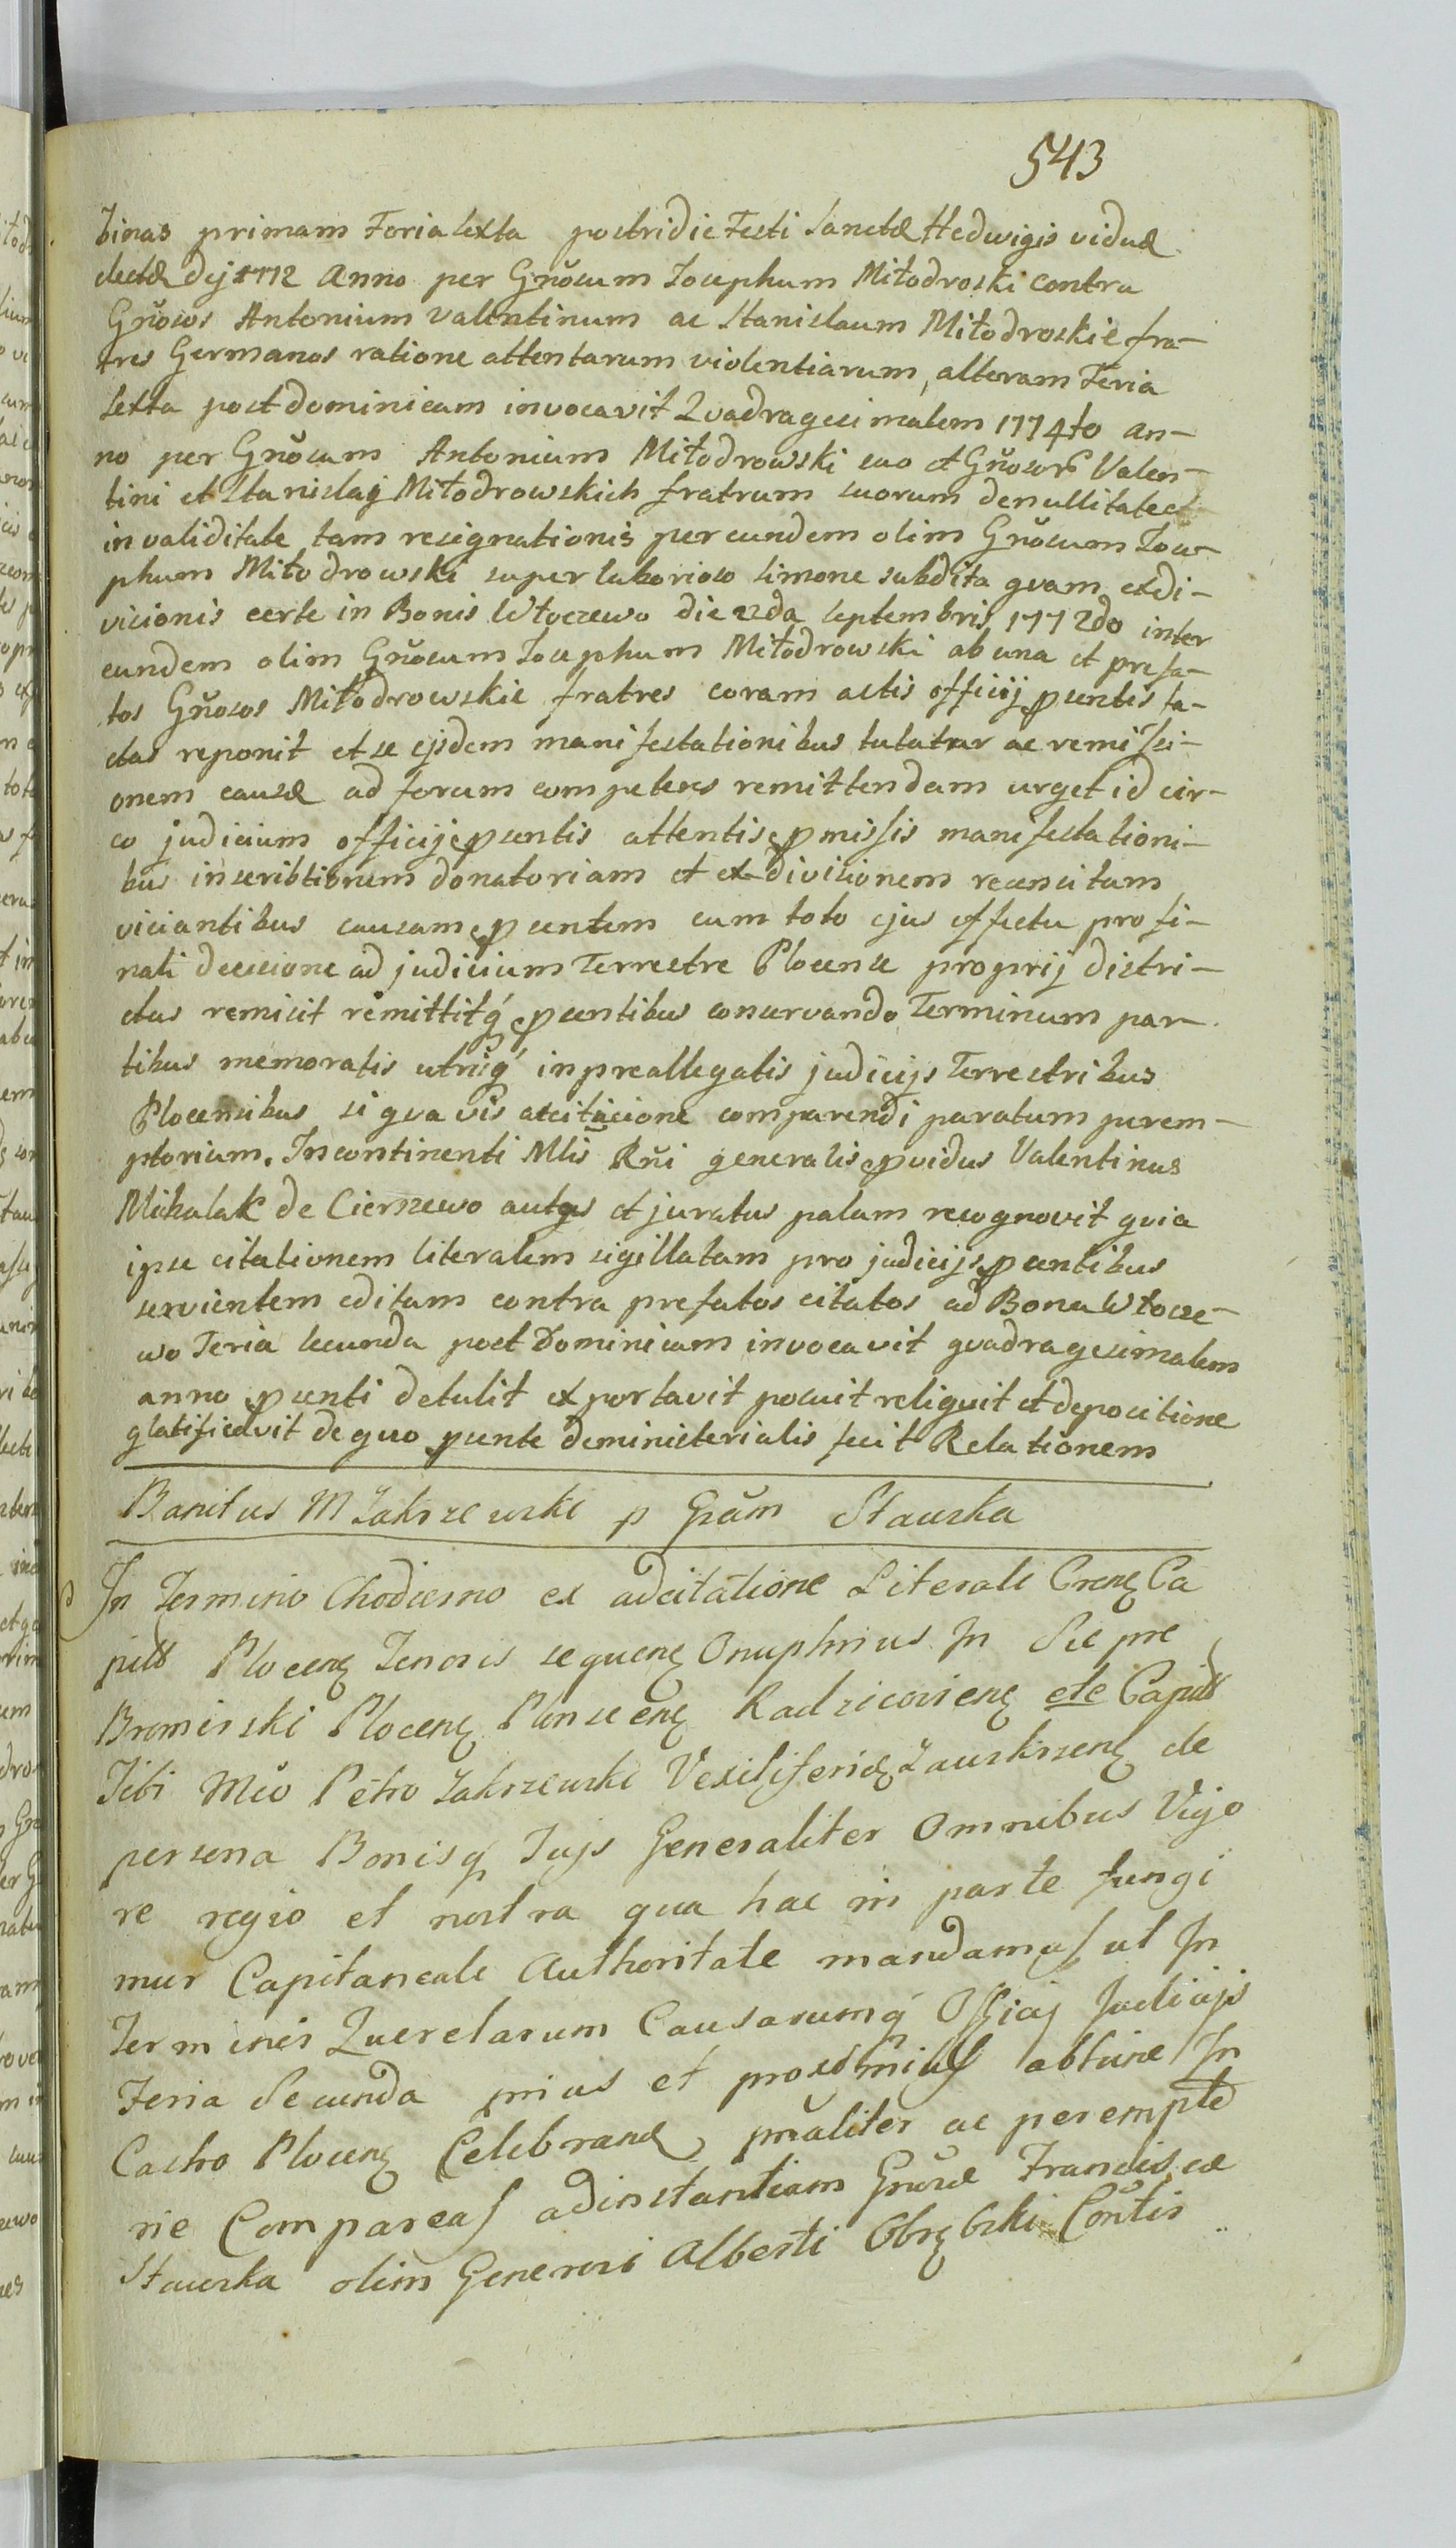 543
binas primam Feria Sexta postridie Festi Sanctæ Hedwigis viduæ
electæ Dej 1772 Anno per Gnŏsum Josephum Miłodroski contra
Gnŏsos Antonium Valentinum ac Stanislaum Miłodroskie fra-
tres Germanos ratione attentarum violentiarum, alteram Feria
Sexta post dominicam invocavit Quadragesimalem 1774to an-
no per Gnŏsum Antonium Miłodrowski suo et Gnŏsor Valen-
tini et Stanislaj Miłodrowskich fratrum suorum de nullitate et
in validitate tam resignationis per eundem olim Gnŏsum Jose-
phum Miłodrowski super laborioso Simone subdita quam exdi-
visionis certe in Bonis Włoczewo die 22da Septembris 1772do inter
eundem olim Gnŏsum Josephum Miłodrowski ab una et prefa-
tos Gnŏsos Miłodrowskie fratres coram actis officij psentis fa-
ctas reponit et se ejsdem manifestationibus tutatur ac remissi-
onem causæ ad forum competens remittendam urget id cir-
co judicium officij psentis attentis pmissis manifestationi-
bus inscribtionem donatoriam et exdivisionem recensitam
viciantibus causam psentem cum toto ejus effectu pro fi-
nali decisione ad judicium Terrestre Plocense proprij distri-
ctus remisit remittitq psentibus conservando Terminum par-
tibus memoratis utrisq in preallegatis judicijs Terrestribus
Plocensibus si qua vis atcitacione comparendi paratum perem-
ptorium. Incontinenti Mlis Rñi generalis pvidus Valentinus
Michalak de Cierszewo autgs et juratus palam recognovit quia
ipse citationem literalem sigillatam pro judicijs psentibus
servientem editam contra prefatos citatos ad Bona Włocze-
wo Feria secunda post Dominicam invocavit quadragesimalem
anno psenti detulit exportavit posuit reliquit et depositione
glatificavit de quo psente de ministerialis fecit Relationem
Banitus M Zakrzewski p Gsăm Stawska
In Termino Chodierno ex adcitatione Literali Crenę Ca
pitt Plocenę Tenoris sequenę Onuphrius In Sie pre
Bromirski Plocenę Plonscenę Radzicovienę etc Capitt
Tibi Mco Petro Zakrzewski Vexilifer Zawskrzenę de
persona Bonisq Tujs Generaliter Omnibus Vigo
re regio et nostra qua hac in parte fungi
mur Capitaneali Authoritate mandamus ut In
Terminis Querelarum Causarumq Officij Judicijs
Feria Secunda prius et proximius abhinc In
Castro Plocenę Celebrand, prŭaliter ac perempto
rie Compareas ad instantiam Gnŏsæ Franciscæ
Stawska olim Generosi Alberti Obrębski Contis